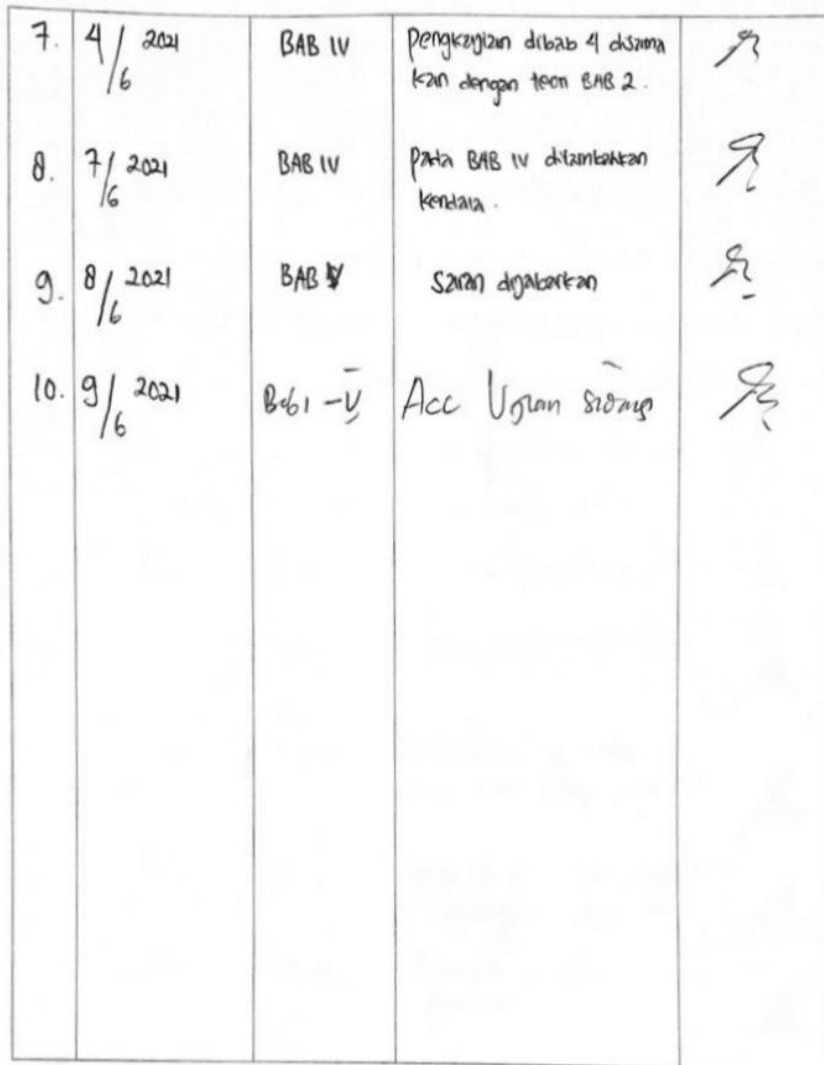 7. 4/6 2021 BAB IV pengkajian dibab 4 disama
kan dengan teori BAB 2.
8. 7/6 2021 BAB IV pada BAB IV ditambahkan
kendala.
9. 8/6 2021 BAB V saran dijabarkan
10. 9/6 2021 Bab 1 - V Acc Ujian sidang